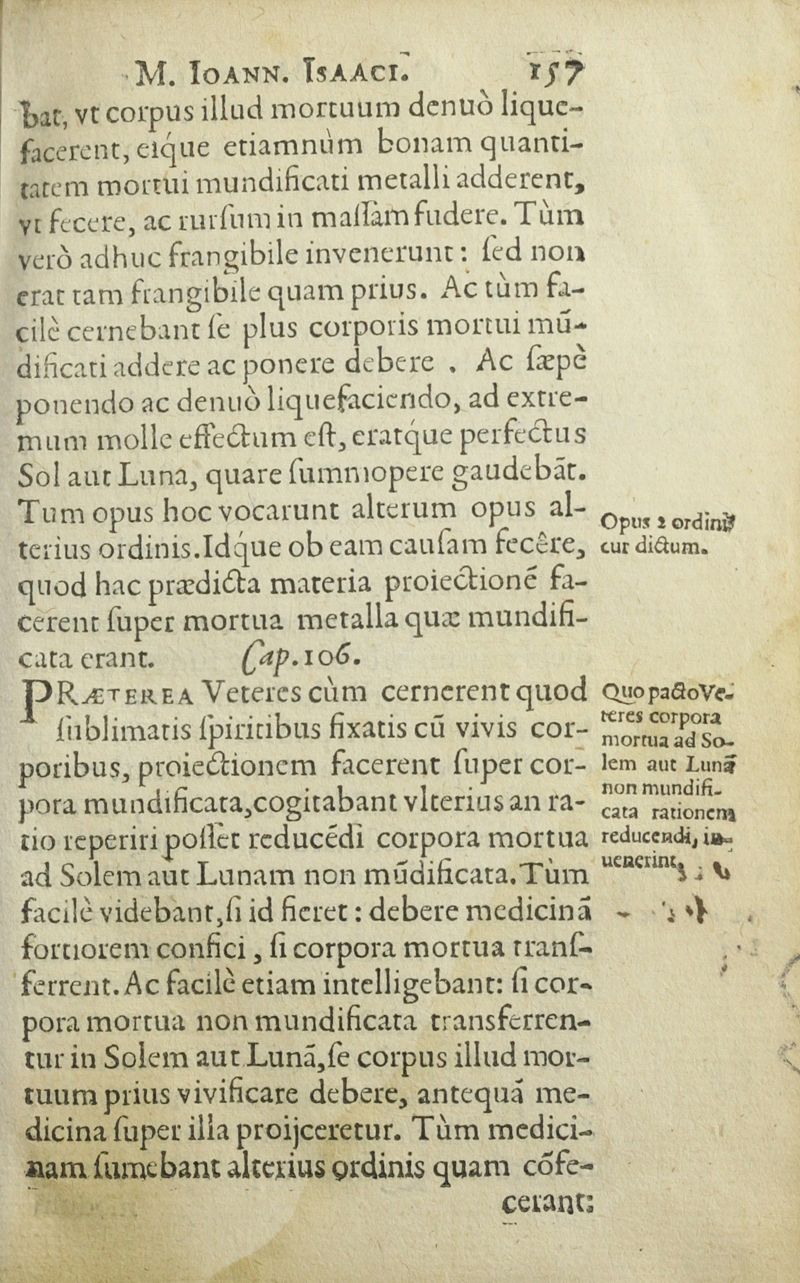 M. IOANN. ISAACI. 157
bat, vt corpus illud mortuum denuò lique-
facerent, eíque etiamnùm bonam quanti-
tatem mortui mundificati metalli adderent,
vt fecere, ac rurſum in maſſam fudere. Tùm
verò adhuc frangibile invenerunt: ſed non
erat tam frangibile quam prius. Ac tùm fa-
cilè cernebant ſe plus corporis mortui mū-
dificati addere ac ponere debere . Ac ſæpè
ponendo ac denuò liquefaciendo, ad extre-
mum molle effectum eſt, eratque perfectus
Sol aut Luna, quare ſummopere gaudebāt.
Tum opus hoc vocarunt alterum opus al-
terius ordinis. Idque ob eam cauſam fecêre,
quod hac prædicta materia proiectionē fa-
cerent ſuper mortua metalla quæ mundifi-
cata erant. Cap. 106.
PRÆTEREA Veteres cùm cernerent quod
ſublimatis ſpiritibus fixatis cū vivis cor-
poribus, proiectionem facerent ſuper cor-
pora mundificata, cogitabant vlterius an ra-
tio reperiri poſſet reducēdi corpora mortua
ad Solem aut Lunam non mūdificata. Tùm
facilè videbant, ſi id fieret: debere medicinā
fortiorem confici, ſi corpora mortua tranſ-
ferrent. Ac facilè etiam intelligebant: ſi cor-
pora mortua non mundificata transferren-
tur in Solem aut Lunā, ſe corpus illud mor-
tuum prius vivificare debere, antequā me-
dicina ſuper illa proijceretur. Tùm medici-
nam ſumebant alterius ordinis quam cōfe-
cerant:
Opus 2 ordinis
cur dictum.
Quo pacto Ve-
teres corpora
mortua ad So-
lem aut Lunā
non mundifi-
cata rationem
reducendi, in-
uenerint,